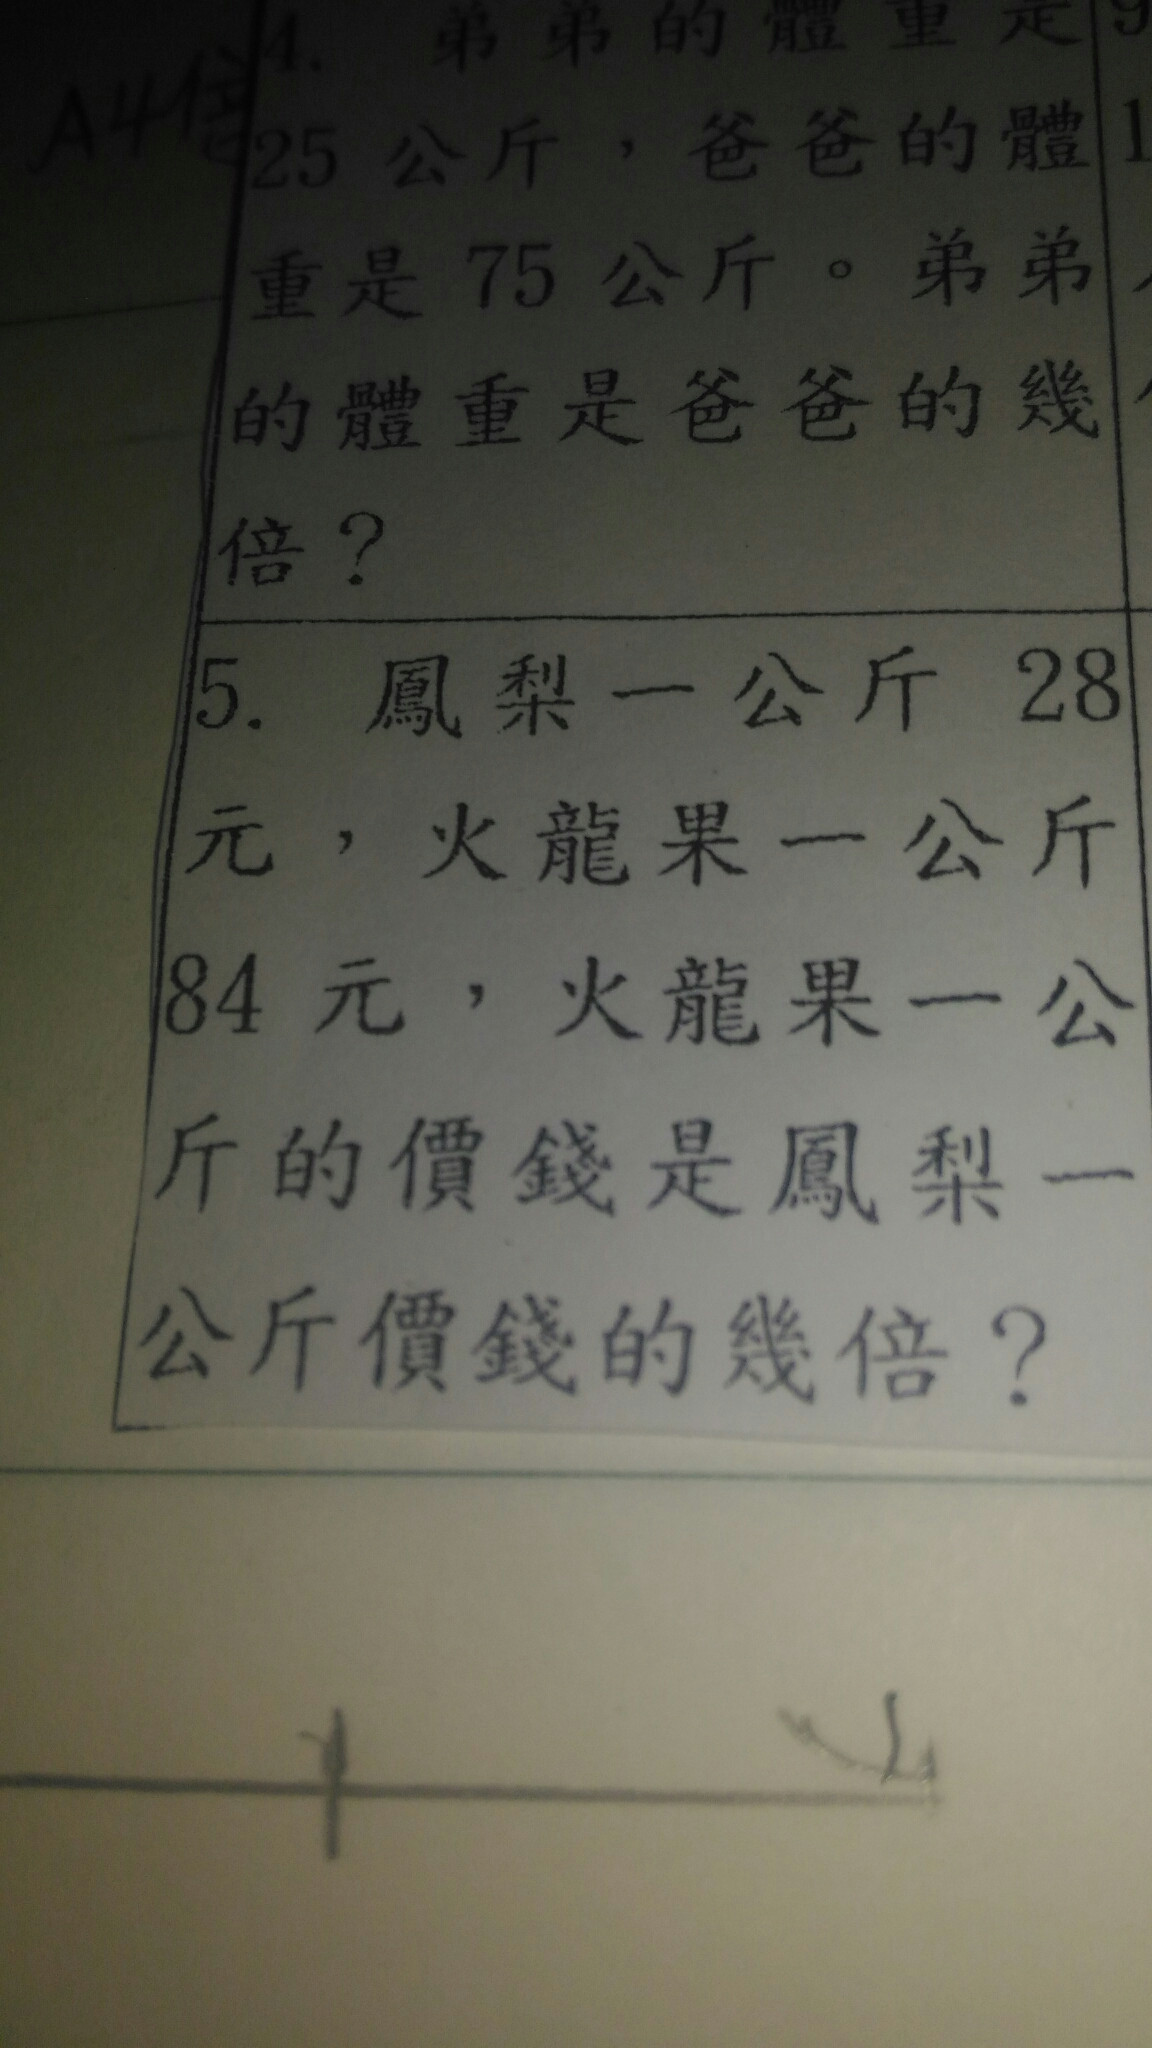 A4倍
4. 弟弟的體重是
25 公斤，爸爸的體
重是 75 公斤。弟弟
的體重是爸爸的幾
倍？
5. 鳳梨一公斤 28
元，火龍果一公斤
84 元，火龍果一公
斤的價錢是鳳梨一
公斤價錢的幾倍？